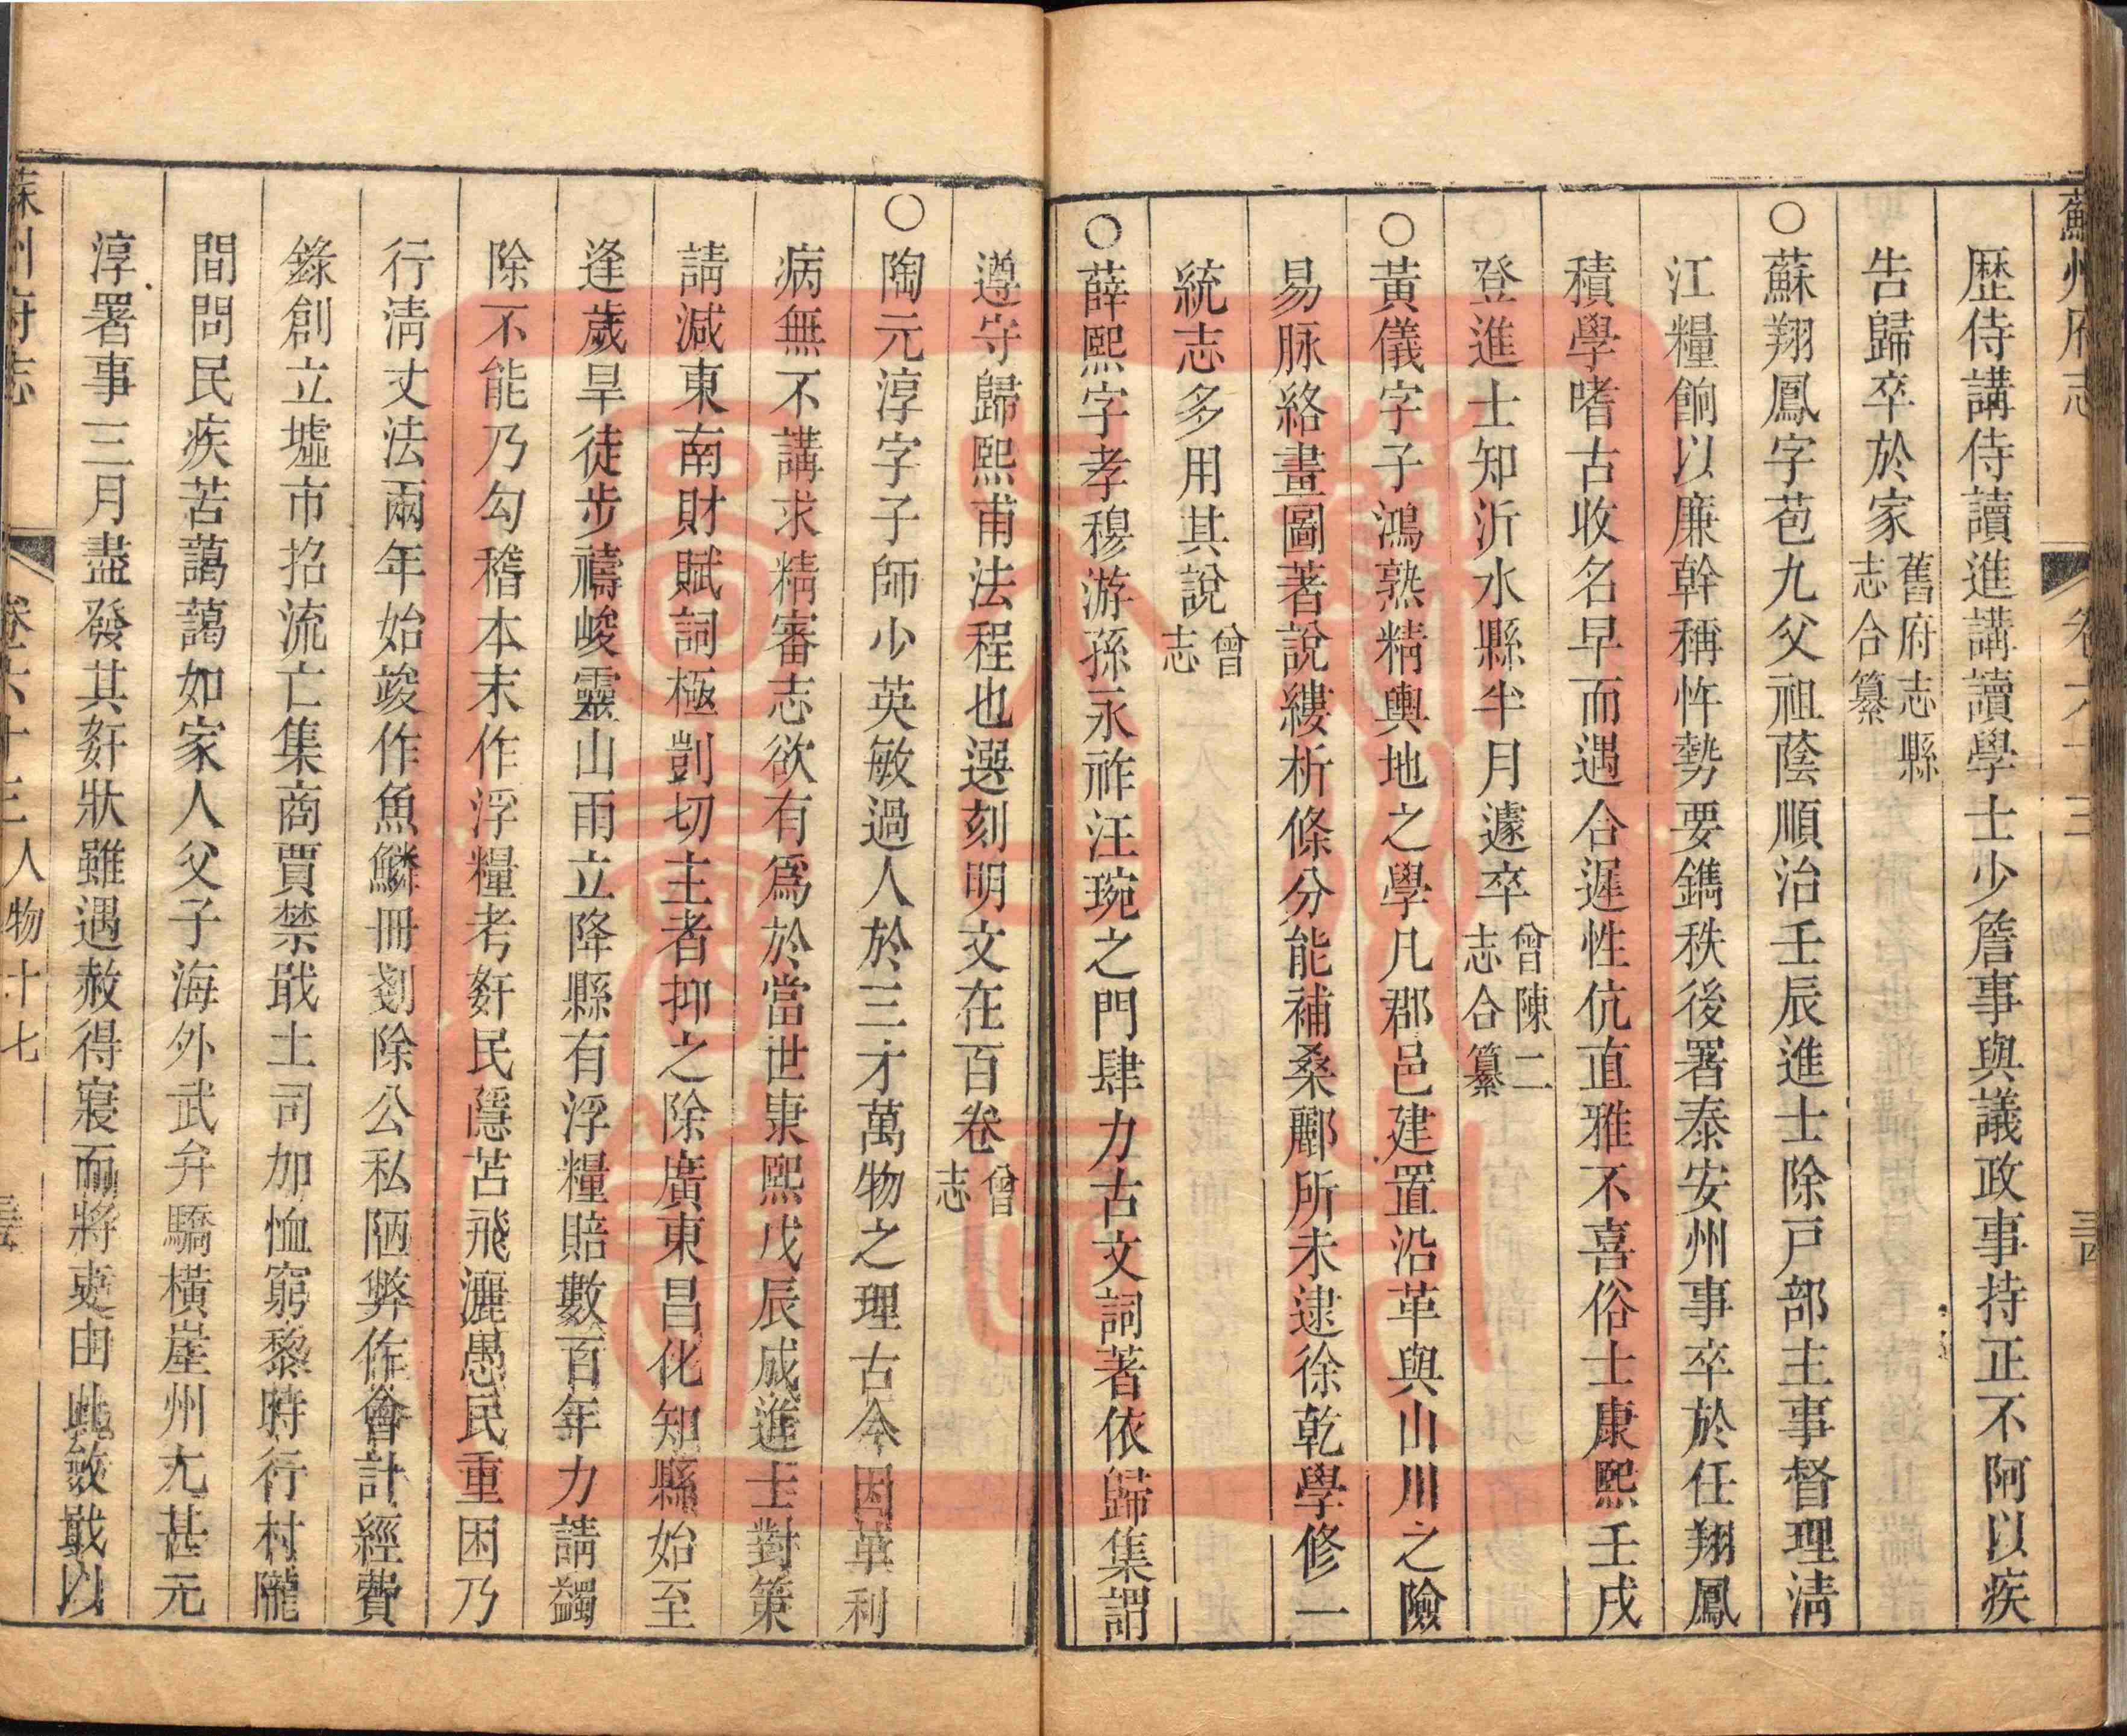 蘇州府志 卷六十三 人物十七
歷侍講侍讀進講讀學士少詹事與議政事持正不阿以疾
告歸卒於家舊府志縣志合纂
○蘇翔鳳字苞九父祖蔭順治壬辰進士除戶部主事督理清
江糧餉以廉幹稱忤勢要鐫秩後署泰安州事卒於任翔鳳
積學嗜古收名早而遇合遲性伉直雅不喜俗士康熙壬戌
登進士知沂水縣半月遽卒曾陳二志合纂
○黃儀字子鴻熟精輿地之學凡郡邑建置沿革與山川之險
易脉絡畫圖著說縷析條分能補桑酈所未逮徐乾學修一
統志多用其說曾志
○薛熙字孝穆游孫永祚汪琬之門肆力古文詞著依歸集謂
遵守歸熙甫法程也選刻明文在百卷曾志
○陶元淳字子師少英敏過人於三才萬物之理古今因革利
病無不講求精審志欲有爲於當世康熙戊辰成進士對策
請減東南財賦詞極剴切主者抑之除廣東昌化知縣始至
逢歲旱徒步禱峻靈山雨立降縣有浮糧賠數百年力請蠲
除不能乃勾稽本末作浮糧考姧民隱苫飛灑愚民重困乃
行清丈法兩年始竣作魚鱗冊剗除公私陋弊作會計經費
錄創立墟市招流亡集商賈禁戢土司加恤窮黎時行村隴
間問民疾苦藹藹如家人父子海外武弁驕橫崖州尤甚元
淳署事三月盡發其姧狀雖遇赦得寢而將吏由此斂戢以
蘇州府志 卷六十三 人物十七